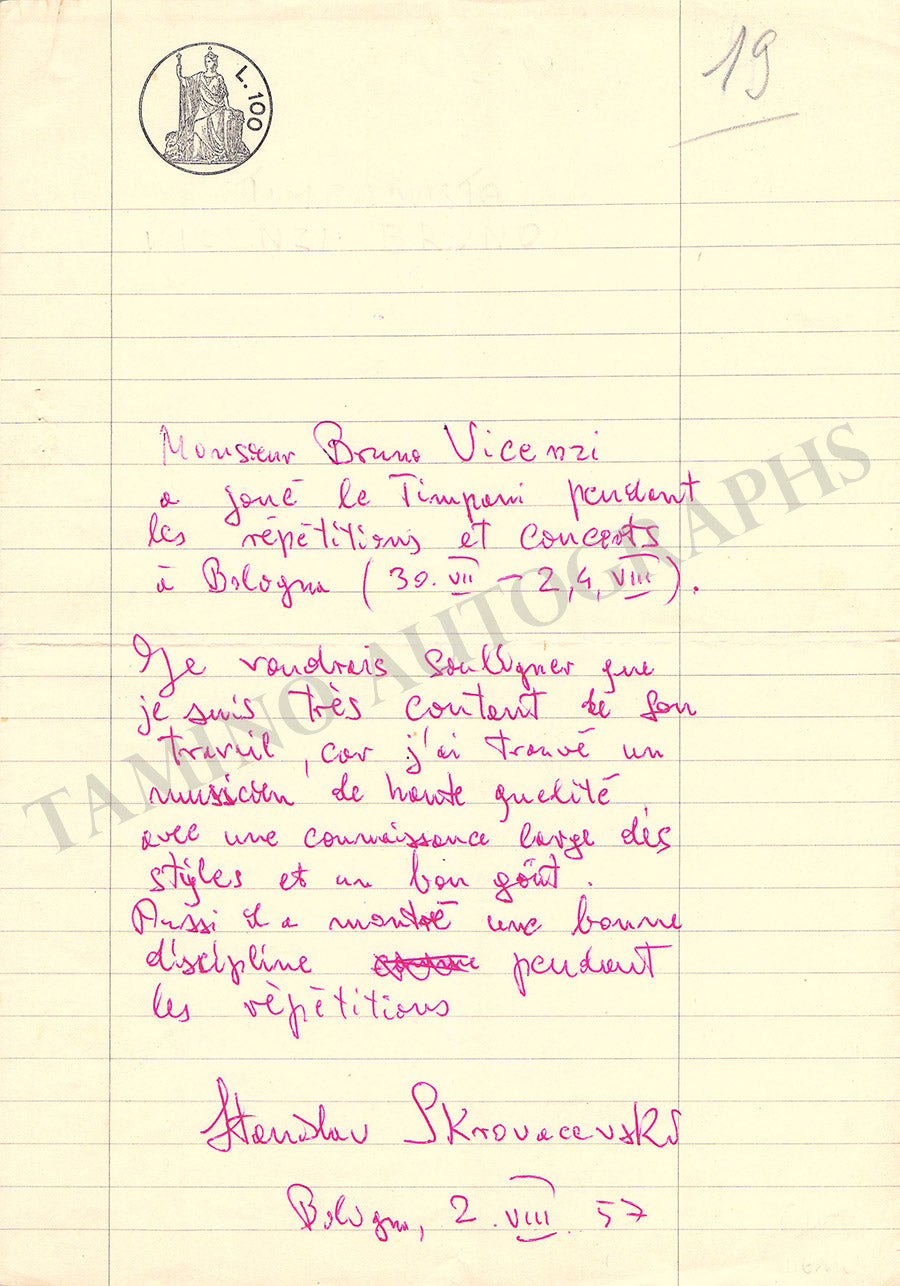 L. 100
19
Monsieur Bruno Vicenzi
a joué le Timpani pendant
les répétitions et concerts
à Bologna (30. VII – 2,4, VIII).
Je voudrais souligner que
je suis très content de son
travail, car j'ai trouvé un
musicien de haute qualité
avec une connaissance large des
styles et un bon goût.
Aussi il a montré une bonne
discipline pendant
les répétitions
Stanislav Skrovacevski
Bologna, 2. VIII. 57
TAMINO AUTOGRAPHS